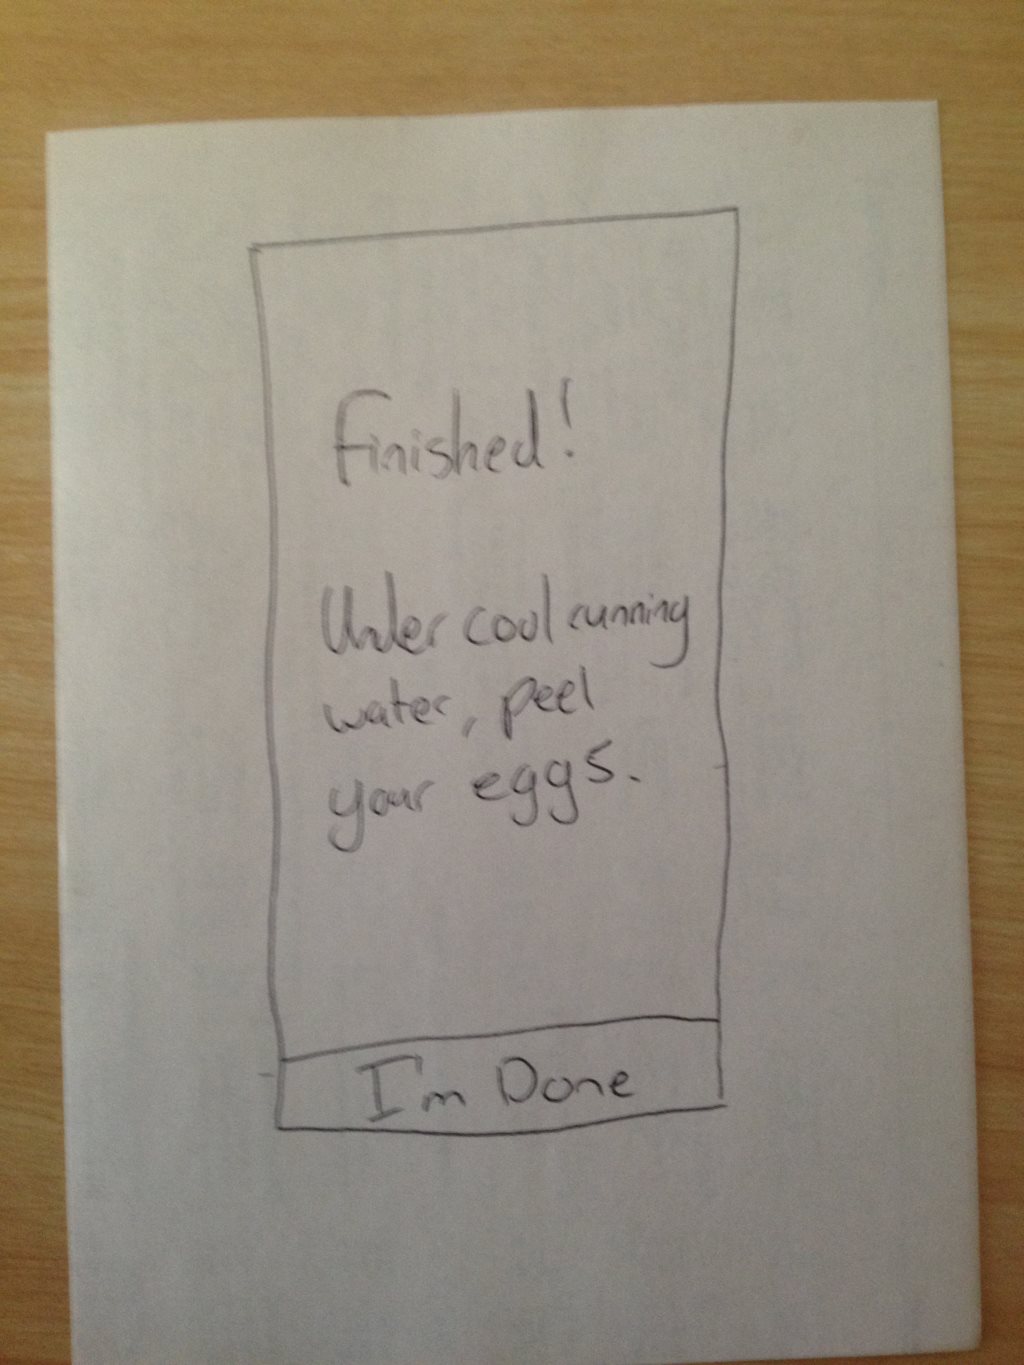 Finished!
Under cool running
water, peel
your eggs.
I'm Done